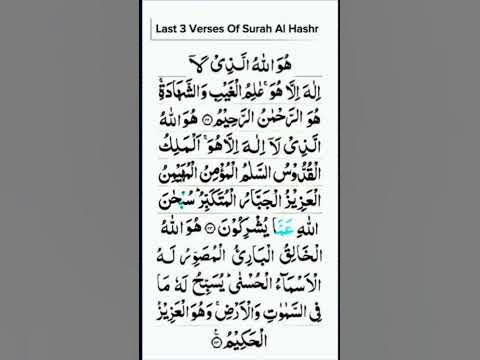 Last 3 Verses Of Surah Al Hashr
هُوَ اللهُ الَّذِىْ لَآ
اِلٰهَ اِلَّا هُوَ ۚ عٰلِمُ الْغَيْبِ وَالشَّهَادَةِ ۚ
هُوَ الرَّحْمٰنُ الرَّحِيْمُ ۝۲۲ هُوَ اللهُ
الَّذِىْ لَآ اِلٰهَ اِلَّا هُوَ ۚ اَلْمَلِكُ
الْقُدُّوْسُ السَّلٰمُ الْمُؤْمِنُ الْمُهَيْمِنُ
الْعَزِيْزُ الْجَبَّارُ الْمُتَكَبِّرُ ؕ سُبْحٰنَ
اللهِ عَمَّا يُشْرِكُوْنَ ۝۲۳ هُوَ اللهُ
الْخَالِقُ الْبَارِئُ الْمُصَوِّرُ لَهُ
الْاَسْمَآءُ الْحُسْنٰى ؕ يُسَبِّحُ لَهٗ مَا
فِى السَّمٰوٰتِ وَالْاَرْضِ ۚ وَهُوَ الْعَزِيْزُ
الْحَكِيْمُ ۝۲۴